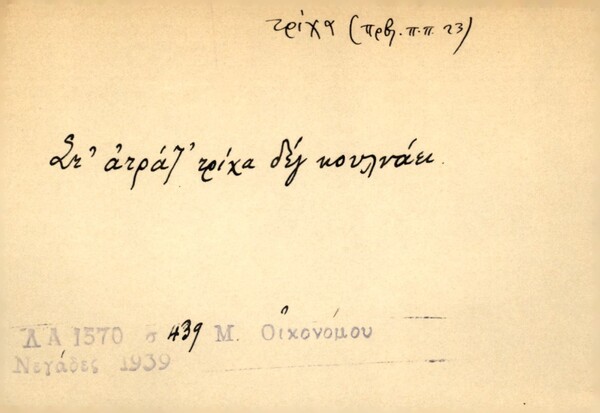 τρίχα (πρβ. π.π. 23)
Στ' ἀτράζ' τρίχα δέν κουλνάει.
ΛΑ 1570 σ 439 Μ. Οἰκονόμου
Νεγάδες 1939